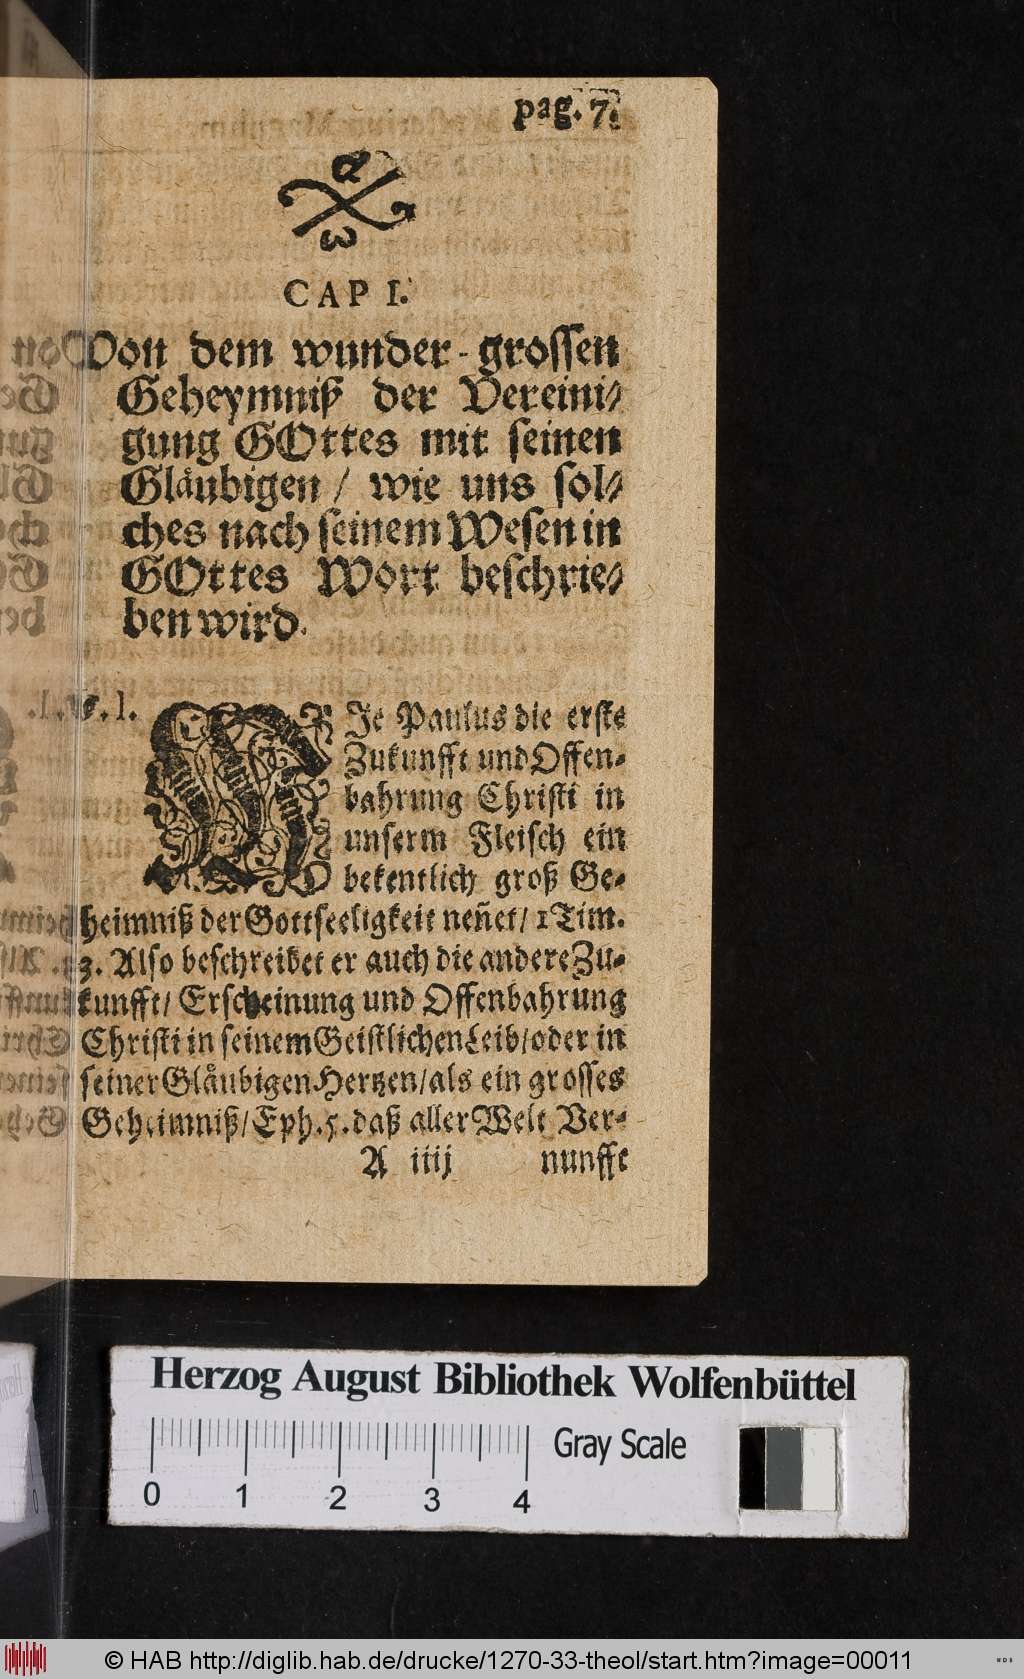 pag. 7.
α
ω
CAP I.
Von dem wunder-grossen
Geheymniß der Vereini-
gung GOttes mit seinen
Gläubigen / wie uns sol-
ches nach seinem Wesen in
GOttes Wort beschrie-
ben wird.
§. 1.
WJe Paulus die erste
Zukunfft und Offen-
bahrung Christi in
unserm Fleisch ein
bekentlich groß Ge-
heimniß der Gottseeligkeit neñet / 1 Tim.
3. Also beschreibet er auch die andere Zu-
kunfft / Erscheinung und Offenbahrung
Christi in seinem Geistlichen Leib / oder in
seiner Glåubigen Hertzen / als ein grosses
Geheimniß / Eph. 5. daß aller Welt Ver-
A iiij nunfft
Herzog August Bibliothek Wolfenbüttel
Gray Scale
0 1 2 3 4
© HAB http://diglib.hab.de/drucke/1270-33-theol/start.htm?image=00011